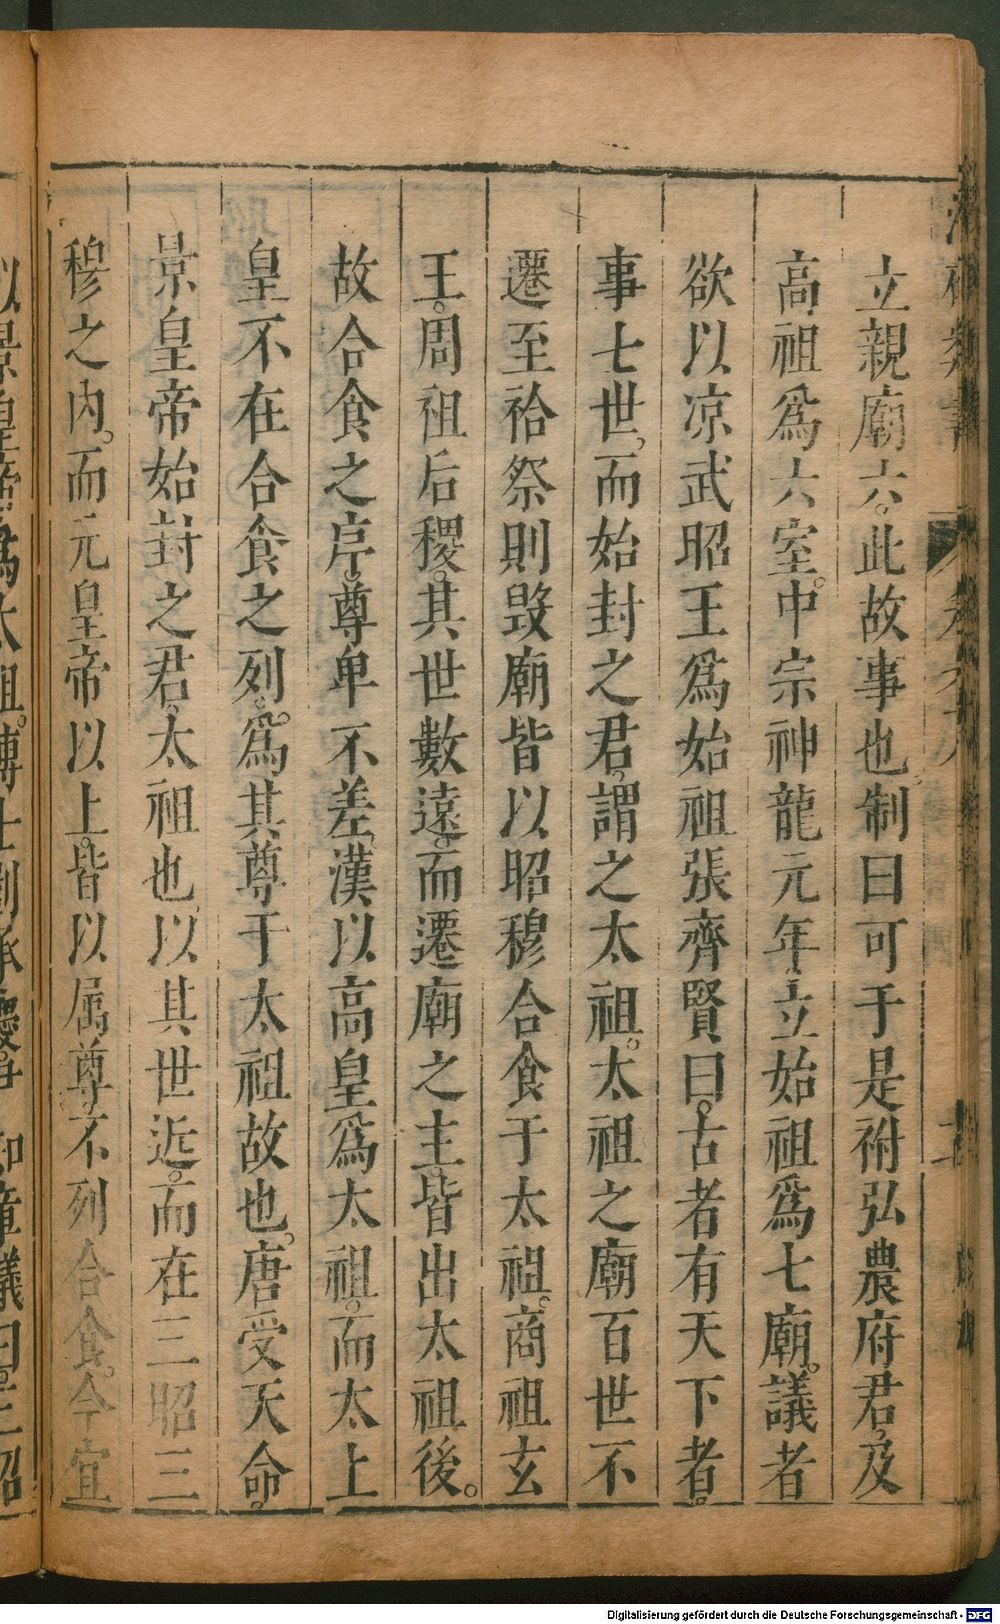 立親廟六。此故事也。制曰可于是祔弘農府君。及
高祖爲六室。中宗神龍元年立始祖爲七廟。議者
欲以凉武昭王爲始祖張齊賢曰。古者有天下者。
事七世。而始封之君。謂之太祖。太祖之廟百世不
遷至祫祭則毀廟皆以昭穆合食于太祖。商祖玄
王。周祖后稷。其世數遠。而遷廟之主。皆出太祖後。
故合食之序。尊卑不差。漢以高皇爲太祖。而太上
皇不在合食之列。爲其尊于太祖故也。唐受天命。
景皇帝始封之君。太祖也。以其世近。而在三昭三
穆之内。而元皇帝以上。皆以属尊不列合食。今宜
以景皇帝爲太祖。博士劉承慶。尹知章議曰。三昭
Digitalisierung gefördert durch die Deutsche Forschungsgemeinschaft - DFG